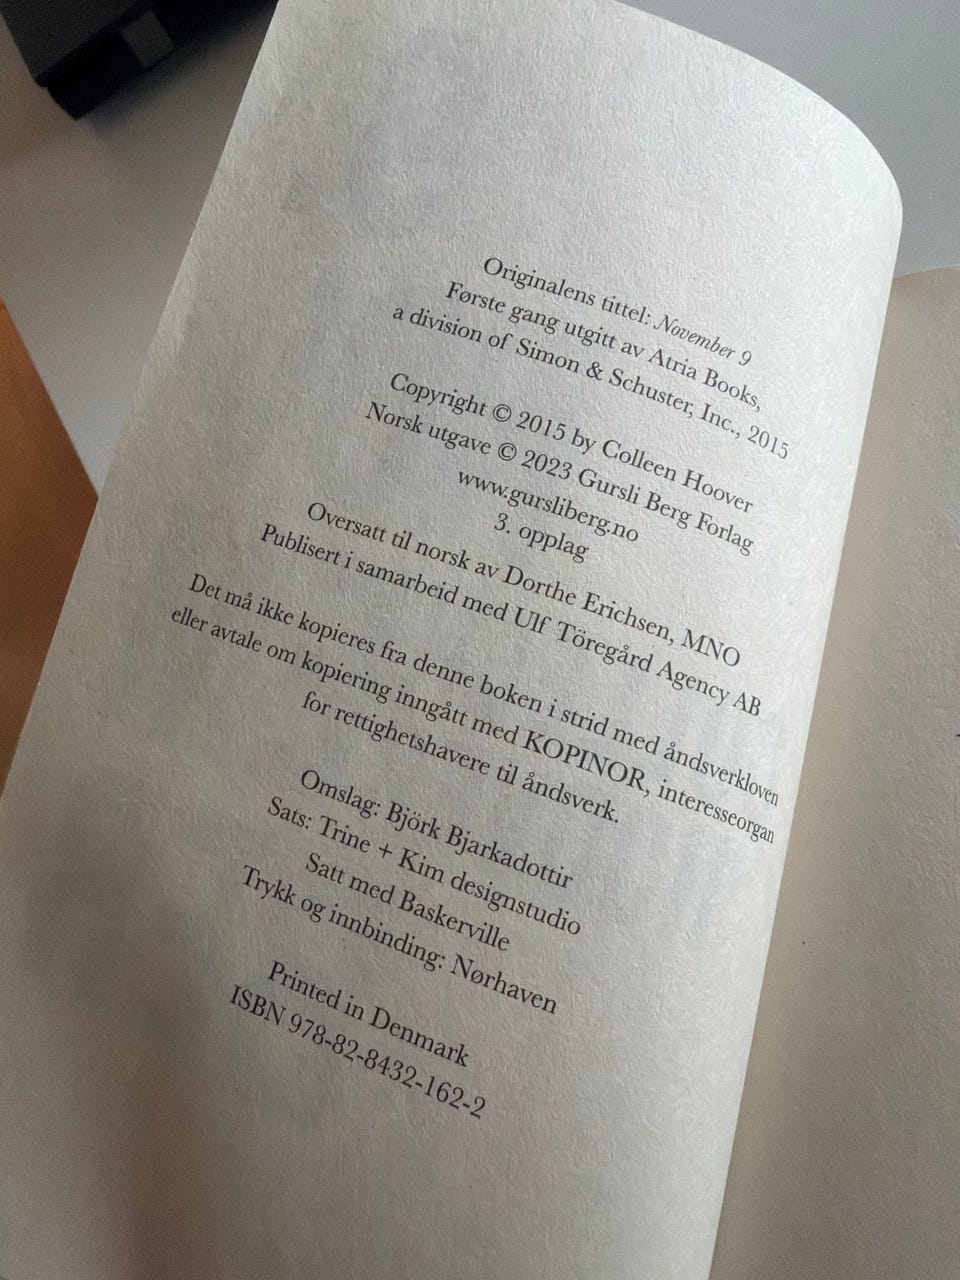 Originalens tittel: November 9
Første gang utgitt av Atria Books,
a division of Simon & Schuster, Inc., 2015
Copyright © 2015 by Colleen Hoover
Norsk utgave © 2023 Gursli Berg Forlag
www.gursliberg.no
3. opplag
Oversatt til norsk av Dorthe Erichsen, MNO
Publisert i samarbeid med Ulf Töregård Agency AB
Det må ikke kopieres fra denne boken i strid med åndsverkloven
eller avtale om kopiering inngått med KOPINOR, interesseorgan
for rettighetshavere til åndsverk.
Omslag: Björk Bjarkadottir
Sats: Trine + Kim designstudio
Satt med Baskerville
Trykk og innbinding: Nørhaven
Printed in Denmark
ISBN 978-82-8432-162-2